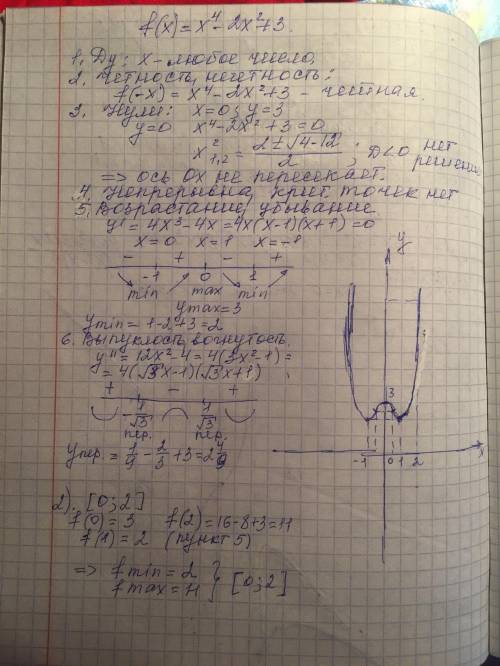 f(x) = x⁴ - 2x² + 3.
1. Ду: x - любое число,
2. Четность, нечетность:
f(-x) = x⁴ - 2x² + 3 - четная.
3. Нули: x=0; y=3
y=0 x⁴ - 2x² + 3 = 0
x²₁,₂ = (2 ± √4-12)/2 ; D<0, нет решения
=> ось Ох не пересекает.
4. Непрерывна, крит. точек нет
5. Возрастание, убывание
y' = 4x³ - 4x = 4x(x-1)(x+1) = 0
x=0 x=1 x=-1
- + - +
-1 0 1
min max min
y max = 3
y min = 1-2+3 = 2
6. Выпуклость, вогнутость.
y'' = 12x² - 4 = 4(3x² - 1) =
= 4(√3x-1)(√3x+1)
+ - +
-1/√3 1/√3
пер. пер.
y пер. = 1/9 - 2/3 + 3 = 2 4/9
2). [0;2]
f(0) = 3 f(2) = 16-8+3 = 11
f(1) = 2 (пункт 5)
=> f min = 2
f max = 11 } [0;2]
y
3
-1 0 1 2 x